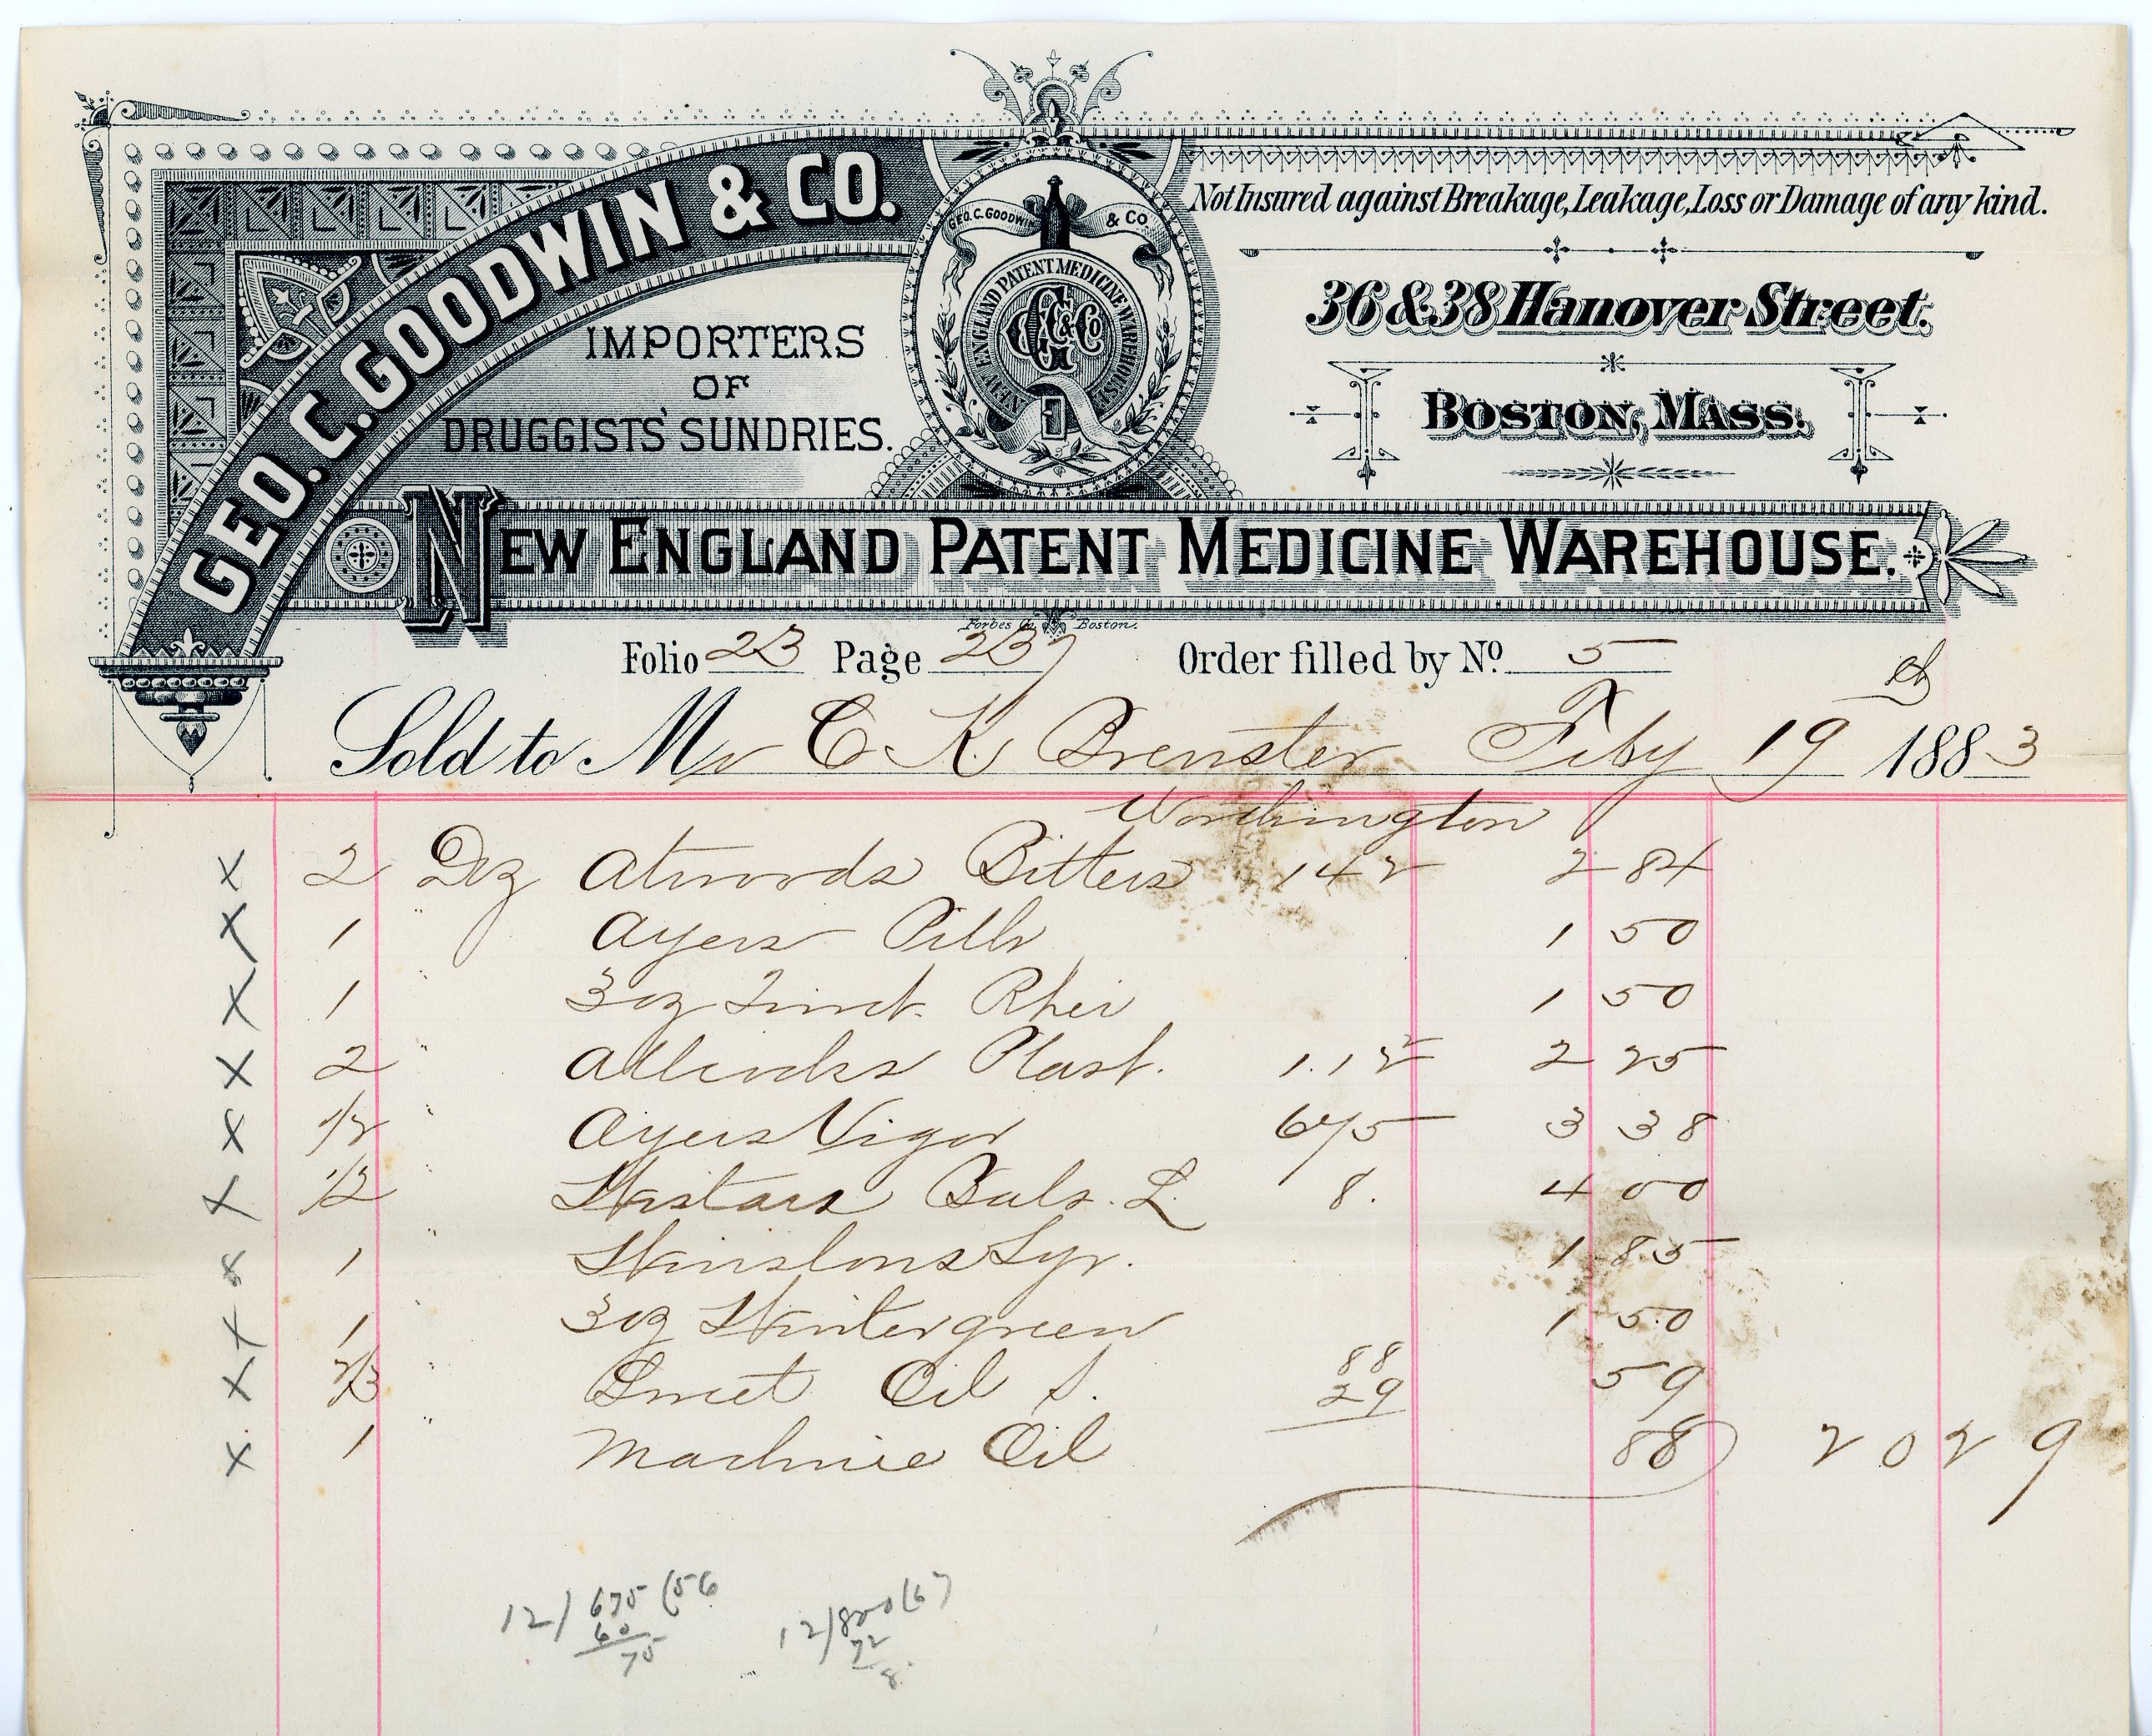 GEO. C. GOODWIN & CO.
IMPORTERS
OF
DRUGGISTS' SUNDRIES.
GEO. C. GOODWIN & CO.
NEW ENGLAND PATENT MEDICINE WAREHOUSE
G.C.G & Co
Not Insured against Breakage, Leakage, Loss or Damage of any kind.
36 & 38 Hanover Street.
BOSTON, MASS.
NEW ENGLAND PATENT MEDICINE WAREHOUSE.
Forbes Co. Boston.
Folio 23 Page 237 Order filled by No. 5
Sold to Mr C K Brewster Feby 19 1883
Worthington
x 2 Doz Atwoods Bitters 142 2 84
x 1 " Ayers Pills 1 50
x 1 " 3oz Tinct. Rhei 1 50
x 2 " Allcocks Plast. 1.12 2 25
x 1/2 " Ayers Vigor 675 3 38
x 1/2 " Wistars Bals. L 8. 4 00
x 1 " Winslows Syr. 1 85
x 1 3oz Wintergreen 1 50
x 2/3 " Sweet Oil S. 88 29 59
x 1 " Machine Oil 88 20 29
12) 675 (56
60
75
12) 800 (67
72
8